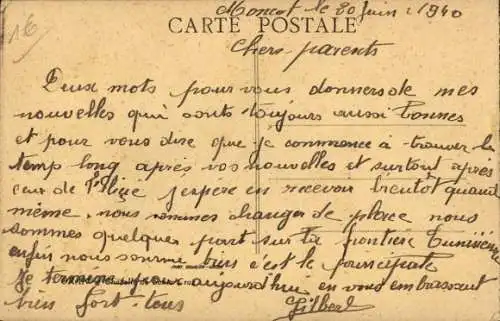 1€
Moncet le 20 Juin 1940
CARTE POSTALE
chers parents
Deux mots pour vous donners de mes
nouvelles qui sont toujours aussi bonnes
et pour vous dire que je commence à trouver le
temp long après vos nouvelles et surtout après
ceux de j'espère en recevoir bientôt quand
même. nous sommes changer de place nous
sommes quelque part sur la frontière Tunisienne
enfin nous somme bien c'est le principale
Je termine pour aujourd'hui en vous embrassant
bien fort tous Gilbert